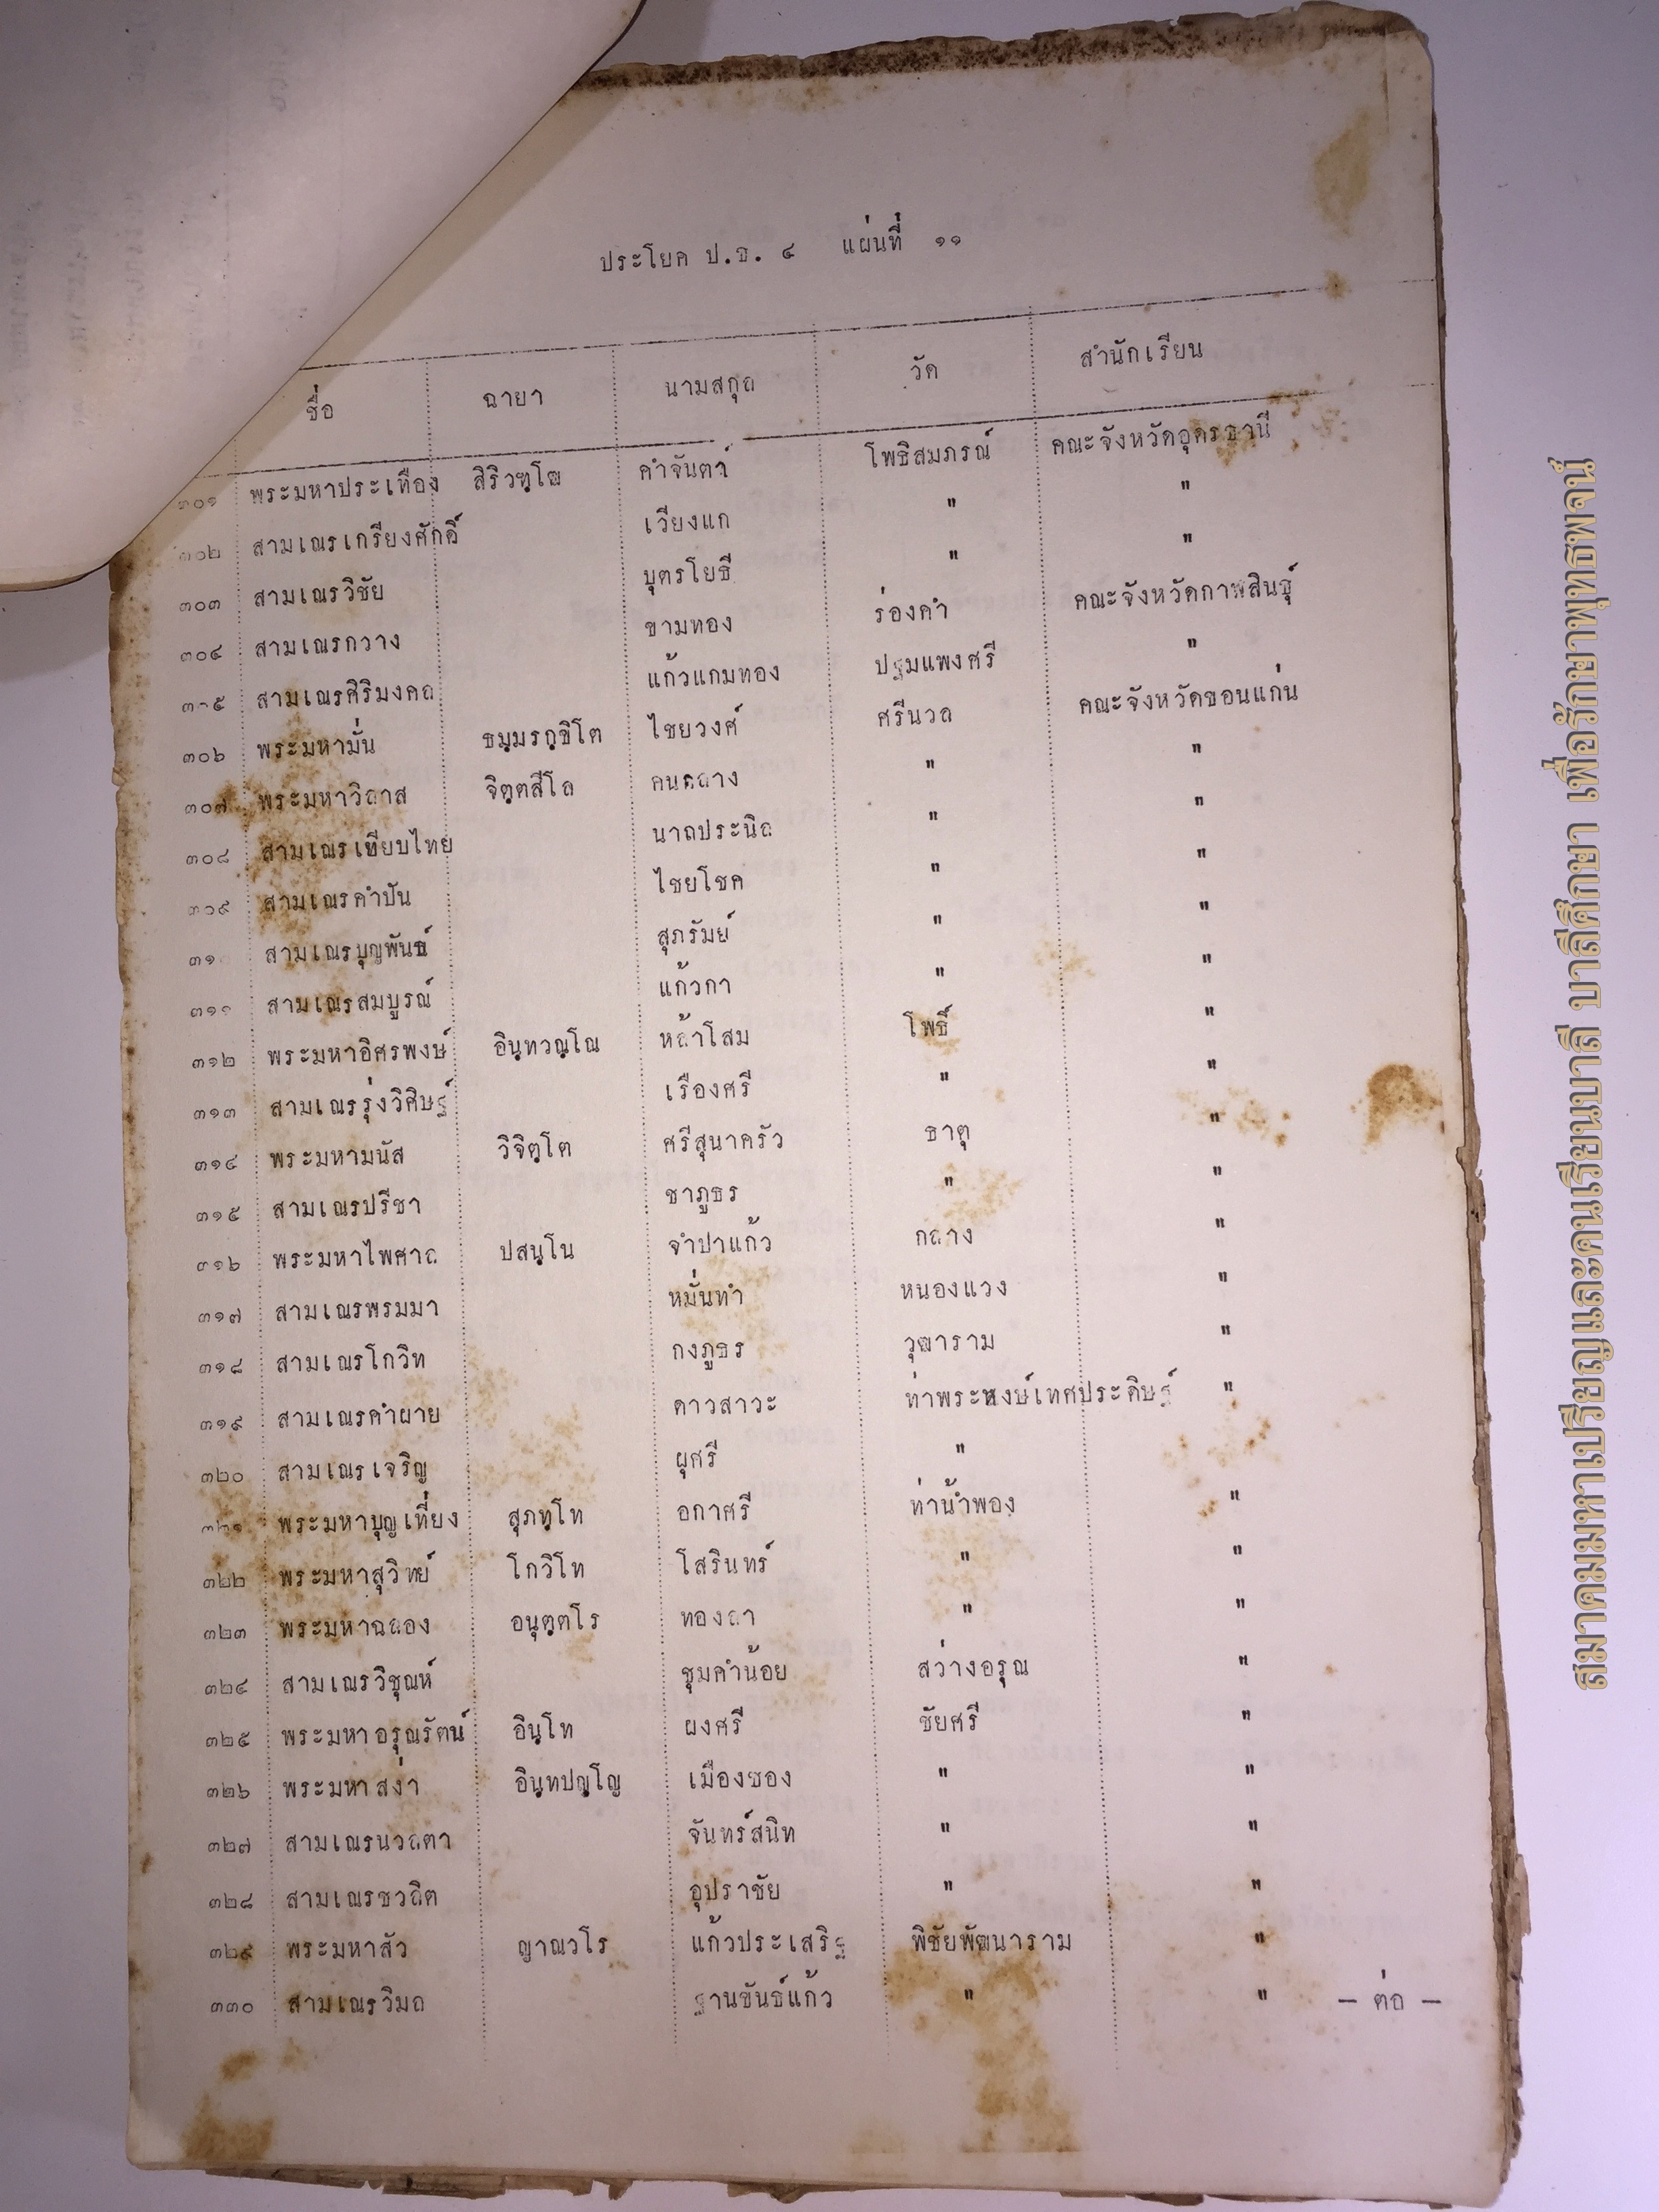 ประโยค ป.ธ. ๔ แผ่นที่ ๑๑
ชื่อ ฉายา นามสกุล วัด สำนักเรียน
๓๐๑ พระมหาประเทือง สิริวฑฺโฒ คำจันตา โพธิสมภรณ์ คณะจังหวัดอุดรธานี
๓๐๒ สามเณรเกรียงศักดิ์ เวียงแก " "
๓๐๓ สามเณรวิชัย บุตรโยธี " "
๓๐๔ สามเณรกวาง ขามทอง ร่องคำ คณะจังหวัดกาฬสินธุ์
๓๐๕ สามเณรศิริมงคล แก้วแกมทอง ปฐมแพงศรี "
๓๐๖ พระมหามั่น ธมฺมรกฺขิโต ไชยวงศ์ ศรีนวล คณะจังหวัดขอนแก่น
๓๐๗ พระมหาวิลาส จิตฺตสีโล คนกลาง " "
๓๐๘ สามเณรเทียบไทย นาถประนิล " "
๓๐๙ สามเณรคำปัน ไชยโชค " "
๓๑๐ สามเณรบุญพันธ์ สุภรัมย์ " "
๓๑๑ สามเณรสมบูรณ์ แก้วกา " "
๓๑๒ พระมหาอิศรพงษ์ อินฺทวณฺโณ หล้าโสม โพธิ์ "
๓๑๓ สามเณรรุ่งวิศิษฐ์ เรืองศรี " "
๓๑๔ พระมหามนัส วิจิตฺโต ศรีสุนาครัว ธาตุ "
๓๑๕ สามเณรปรีชา ชาภูธร " "
๓๑๖ พระมหาไพศาล ปสนฺโน จำปาแก้ว กลาง "
๓๑๗ สามเณรพรมมา หมั่นทำ หนองแวง "
๓๑๘ สามเณรโกวิท กงภูธร วุฒาราม "
๓๑๙ สามเณรคำผาย ดาวสาวะ ท่าพระหงษ์เทศประดิษฐ์ "
๓๒๐ สามเณรเจริญ ผุศรี " "
๓๒๑ พระมหาบุญเที่ยง สุภทฺโท อกาศรี ท่าน้ำพอง "
๓๒๒ พระมหาสุวิทย์ โกวิโท โสรินทร์ " "
๓๒๓ พระมหาฉลอง อนุตฺตโร ทองลา " "
๓๒๔ สามเณรวิชุณห์ ชุมคำน้อย สว่างอรุณ "
๓๒๕ พระมหาอรุณรัตน์ อินฺโท ผงศรี ชัยศรี "
๓๒๖ พระมหาสง่า อินฺทปญฺโญ เมืองซอง " "
๓๒๗ สามเณรนวลตา จันทร์สนิท " "
๓๒๘ สามเณรชวลิต อุปราชัย " "
๓๒๙ พระมหาสัว ญาณวโร แก้วประเสริฐ พิชัยพัฒนาราม "
๓๓๐ สามเณรวิมล ฐานขันธ์แก้ว " "
— ต่อ —
สมาคมมหาเปรียญและคนเรียนบาลี บาลีศึกษา เพื่อรักษาพุทธพจน์